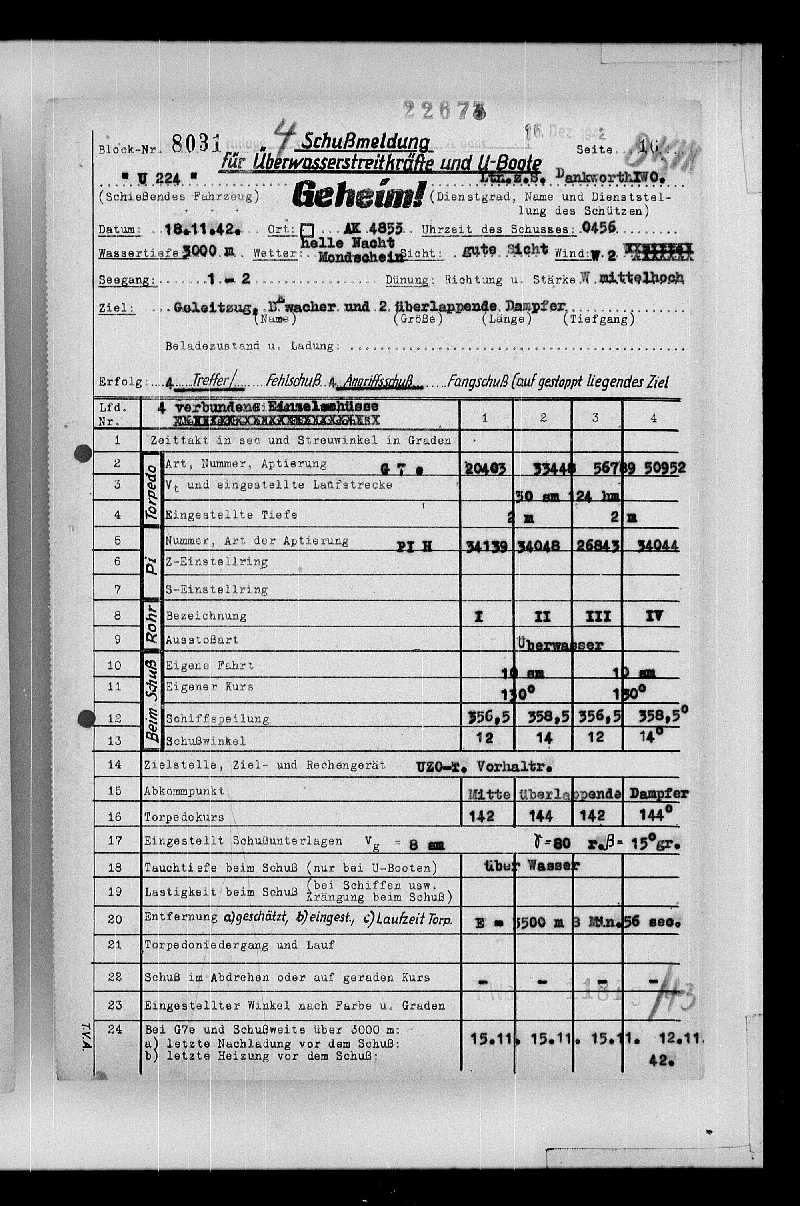 22675
16. Dez 1942
Block-Nr. 8031 4 Schußmeldung Seite 16
für Überwasserstreitkräfte und U-Boote
" U 224 " Geheim! Ltn.z.S. Dankworth IWO.
(Schießendes Fahrzeug) (Dienstgrad, Name und Dienststel-
lung des Schützen)
Datum: 18.11.42. Ort: AK 4853 Uhrzeit des Schusses: 0456
Wassertiefe 3000 m Wetter: helle Nacht Mondschein Sicht: gute Sicht Wind: W 2
Seegang: 1 - 2 Dünung: Richtung u. Stärke W mittelhoch
Ziel: Geleitzug, Bewacher und 2 überlappende Dampfer
(Name) (Größe) (Länge) (Tiefgang)
Beladezustand u. Ladung:
Erfolg: 4 Treffer/ Fehlschuß 4 Angriffsschuß Fangschuß (auf gestoppt liegendes Ziel
Lfd. Nr. 4 verbundene Einzelschüsse 1 2 3 4
1 Zeittakt in sec und Streuwinkel in Graden
Torpedo
2 Art, Nummer, Aptierung G 7 e 20403 33448 56789 50952
3 Vt und eingestellte Laufstrecke 30 sm 124 hm
4 Eingestellte Tiefe 2 m 2 m
Pi
5 Nummer, Art der Aptierung PI H 34139 34048 26843 34044
6 Z-Einstellring
7 S-Einstellring
Rohr
8 Bezeichnung I II III IV
9 Ausstoßart Überwasser
Beim Schuß
10 Eigene Fahrt 10 sm 10 sm
11 Eigener Kurs 130° 130°
12 Schiffspeilung 356,5 358,5 356,5 358,5°
13 Schußwinkel 12 14 12 14°
14 Zielstelle, Ziel- und Rechengerät UZO-T. Vorhaltr.
15 Abkommpunkt Mitte überlappende Dampfer
16 Torpedokurs 142 144 142 144°
17 Eingestellt Schußunterlagen Vg = 8 sm γ=80 r.β= 15°gr.
18 Tauchtiefe beim Schuß (nur bei U-Booten) über Wasser
19 Lastigkeit beim Schuß (bei Schiffen usw. Krängung beim Schuß)
20 Entfernung a) geschätzt, b) eingest., c) Laufzeit Torp. E = 3500 m 3 Min. 56 sec.
21 Torpedoniedergang und Lauf
22 Schuß im Abdrehen oder auf geraden Kurs - - - -
23 Eingestellter Winkel nach Farbe u. Graden
24 Bei G7e und Schußweite über 3000 m:
a) letzte Nachladung vor dem Schuß: 15.11. 15.11. 15.11. 12.11.
b) letzte Heizung vor dem Schuß: 42.
T.V.A.